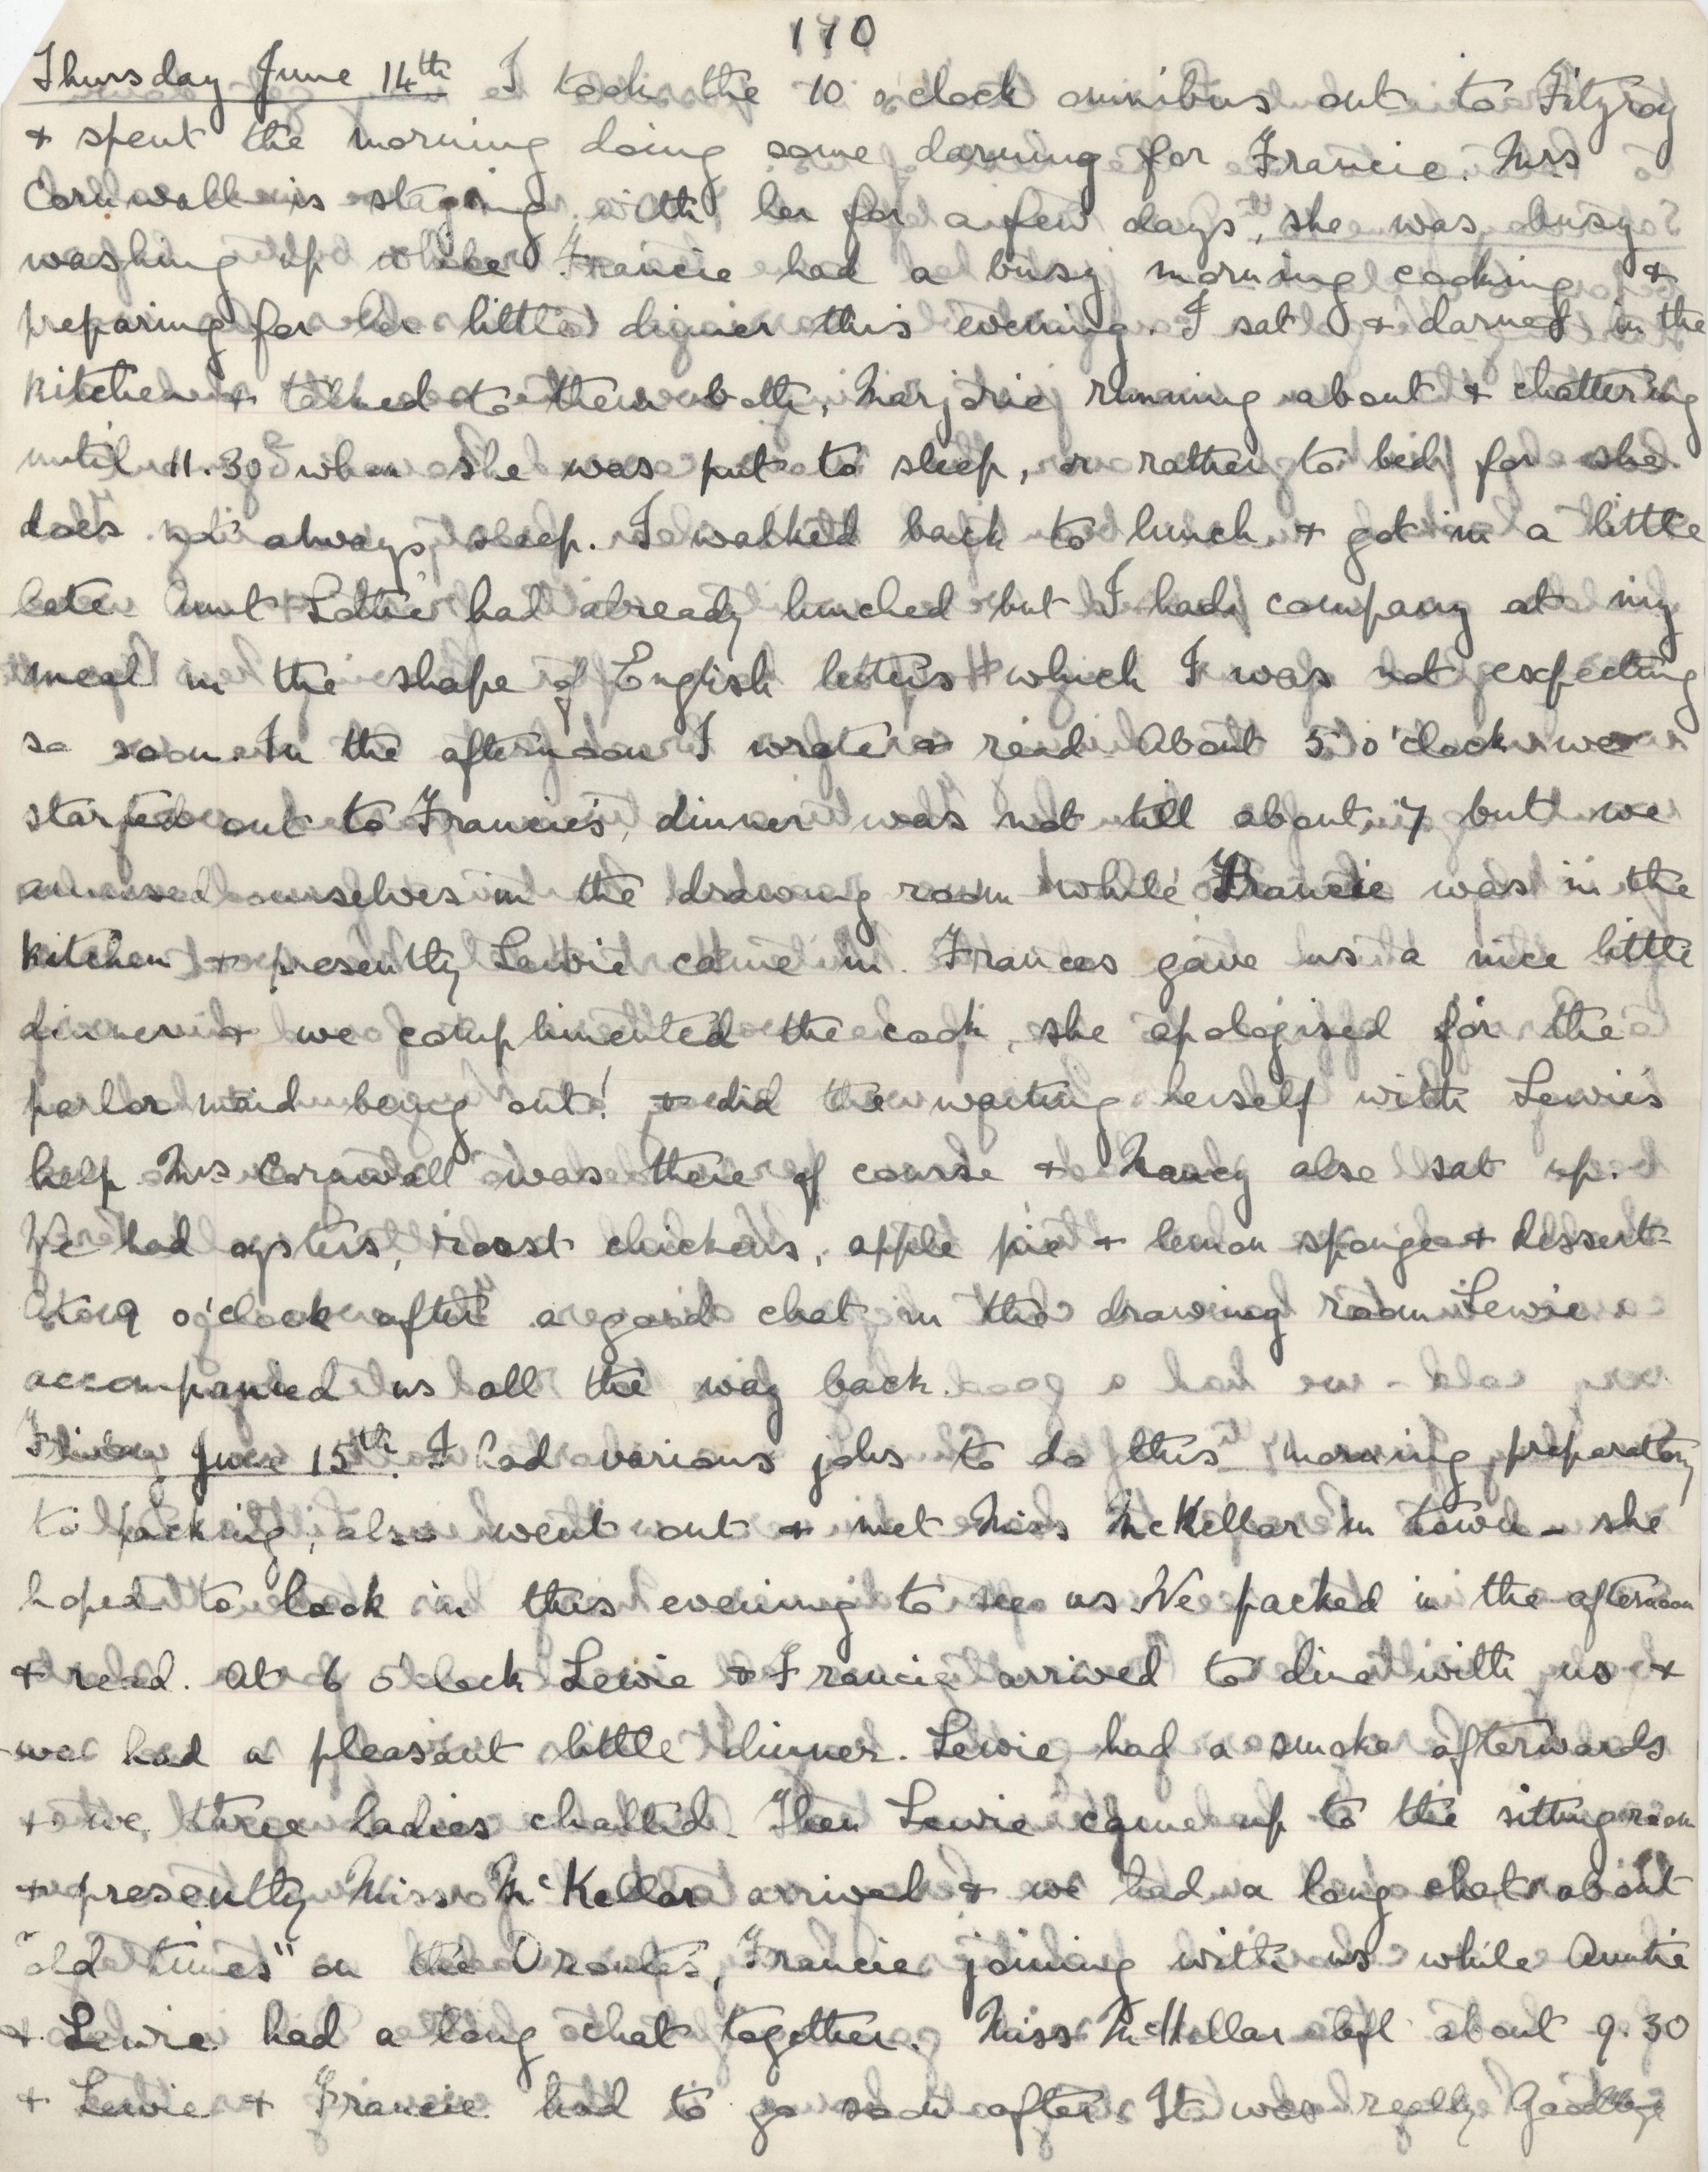 170
Thursday June 14th I took the 10 o'clock omnibus out to Fitzroy
+ spent the morning doing some darning for Francie. Mrs
Cornwall is staying with her for a few days, she was busy
washing up while Francie had a busy morning cooking +
preparing for her little dinner this evening. I sat + darned in the
kitchen + talked to them both, Marjorie running about + chattering
until 11.30 when she was put to sleep, or rather to bed for she
does not always sleep. I walked back to lunch + got in a little
late Aunt Lottie had already lunched but I had company at my
meal in the shape of English letters which I was not expecting
so soon. In the afternoon I wrote + read About 5 o'clock we
started out to Francie's, dinner was not till about 7 but we
amused ourselves in the drawing room while Francie was in the
kitchen + presently Lewie came in. Frances gave us a nice little
dinner + we complimented the cook, she apologised for the
parlor maid being out! + did the waiting herself with Lewie's
help Mrs Cornwall was there of course + Nancy also sat up.
We had oysters, roast chickens, apple pie + lemon sponge + dessert-
At 9 o'clock after a good chat in the drawing room Lewie
accompanied us all the way back.
Friday June 15th. I had various jobs to do this morning preparatory
to packing, also went out + met Miss McKellar in town - she
hoped to look in this evening to see us We packed in the afternoon
+ read. At 6 o'clock Lewie + Francie arrived to dine with us +
we had a pleasant little dinner. Lewie had a smoke afterwards
+ we three ladies chatted. Then Lewie came up to the sitting room
+ presently Miss McKellar arrived + we had a long chat about
"old times" on the Orontes, Francie joining with us while Auntie
+ Lewie had a long chat together. Miss McKellar left about 9.30
+ Lewie + Francie had to go soon after. It was really Goodbye